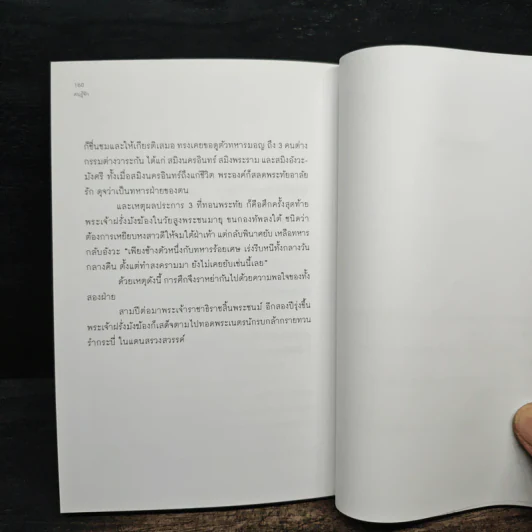 ก็ชื่นชมและให้เกียรติเสมอ ทรงเคยขอดูตัวทหารมอญ ถึง 3 คนต่าง
กรรมต่างวาระกัน ได้แก่ สมิงนครอินทร์ สมิงพระราม และสมิงอังวะ-
มังศรี ทั้งเมื่อสมิงนครอินทร์ถึงแก่ชีวิต พระองค์ก็สลดพระทัยอาลัย
รัก ดุจว่าเป็นทหารฝ่ายของตน
และเหตุผลประการ 3 ที่ทอนพระทัย ก็คือศึกครั้งสุดท้าย
พระเจ้าฝรั่งมังฆ้องในวัยสูงพระชนมายุ ขนกองทัพลงใต้ ชนิดว่า
ต้องการเหยียบหงสาวดีให้จมใต้ฝ่าเท้า แต่กลับพินาศยับ เหลือทหาร
กลับอังวะ "เพียงช้างตัวหนึ่งกับทหารร้อยเศษ เร่งรีบหนีทั้งกลางวัน
กลางคืน ตั้งแต่ทำสงครามมา ยังไม่เคยยับเช่นนี้เลย"
ด้วยเหตุดังนี้ การศึกจึงราหย่ากันไปด้วยความพอใจของทั้ง
สองฝ่าย
สามปีต่อมาพระเจ้าราชาธิราชสิ้นพระชนม์ อีกสองปีรุ่งขึ้น
พระเจ้าฝรั่งมังฆ้องก็เสด็จตามไปทอดพระเนตรนักรบกล้ากรายทวน
รำกระบี่ ในแดนสรวงสวรรค์